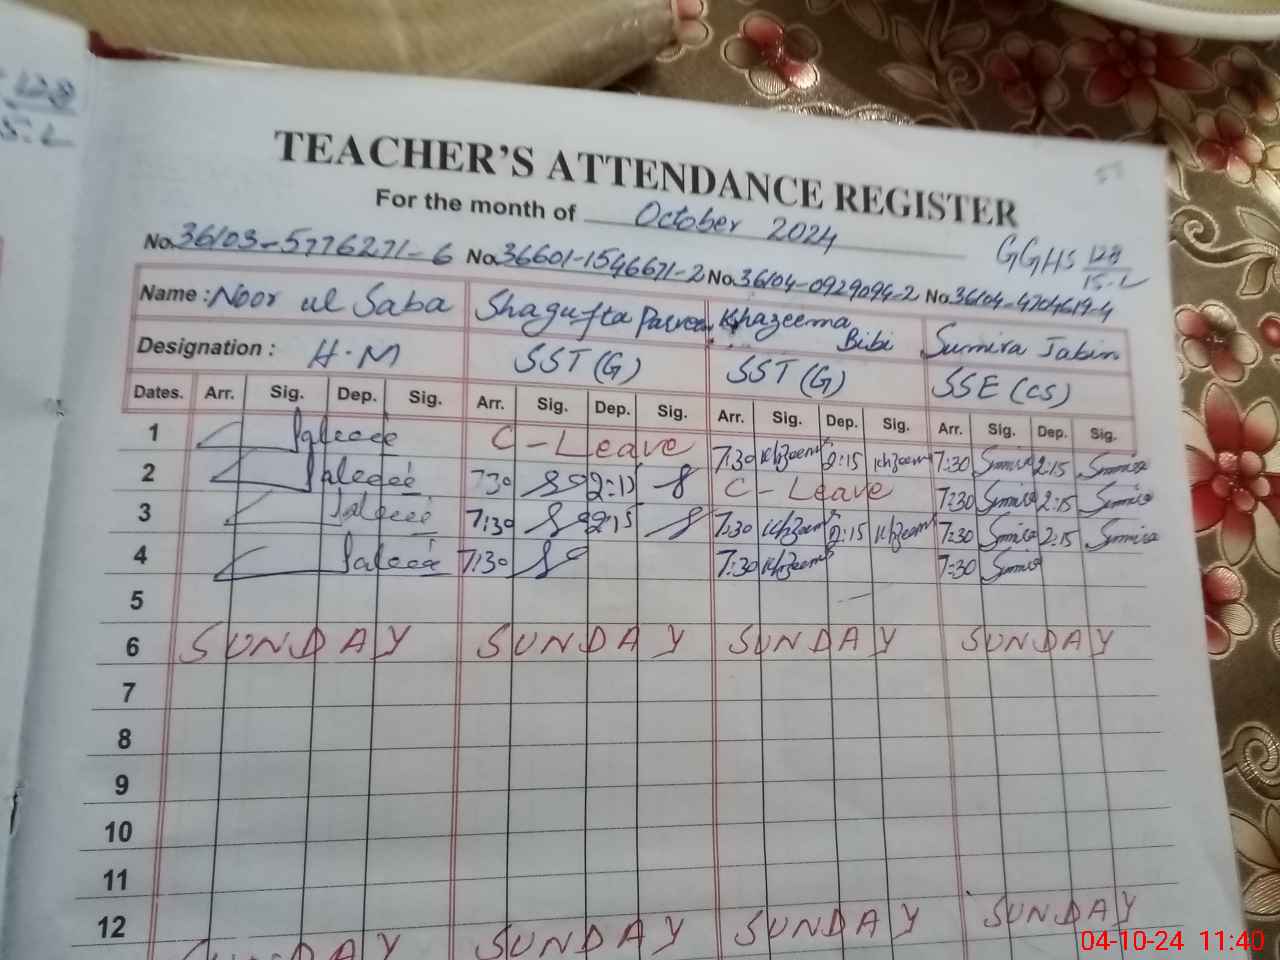 128
15-L
TEACHER'S ATTENDANCE REGISTER
For the month of October 2024
GGHS 128
15-L
No. 36103-5776271-6 No. 36601-1546671-2 No. 36104-0929094-2 No. 36104-4704619-4
Name : Noor ul Saba Shagufta Parveen Khazeema Bibi Sumira Jabin
Designation : H.M SST (G) SST (G) SSE (CS)
Dates. Arr. Sig. Dep. Sig. Arr. Sig. Dep. Sig. Arr. Sig. Dep. Sig. Arr. Sig. Dep. Sig.
1 C - Leave 7:30 Khzeem 2:15 Khzeem 7:30 Sumira 2:15 Sumira
2 7:30 2:15 C - Leave 7:30 Sumira 2:15 Sumira
3 7:30 2:15 7:30 Khzeem 2:15 Khzeem 7:30 Sumira 2:15 Sumira
4 7:30 7:30 Khzeem 7:30 Sumira
5
6 SUNDAY SUNDAY SUNDAY SUNDAY
7
8
9
10
11
12 SUNDAY SUNDAY SUNDAY SUNDAY
04-10-24 11:40